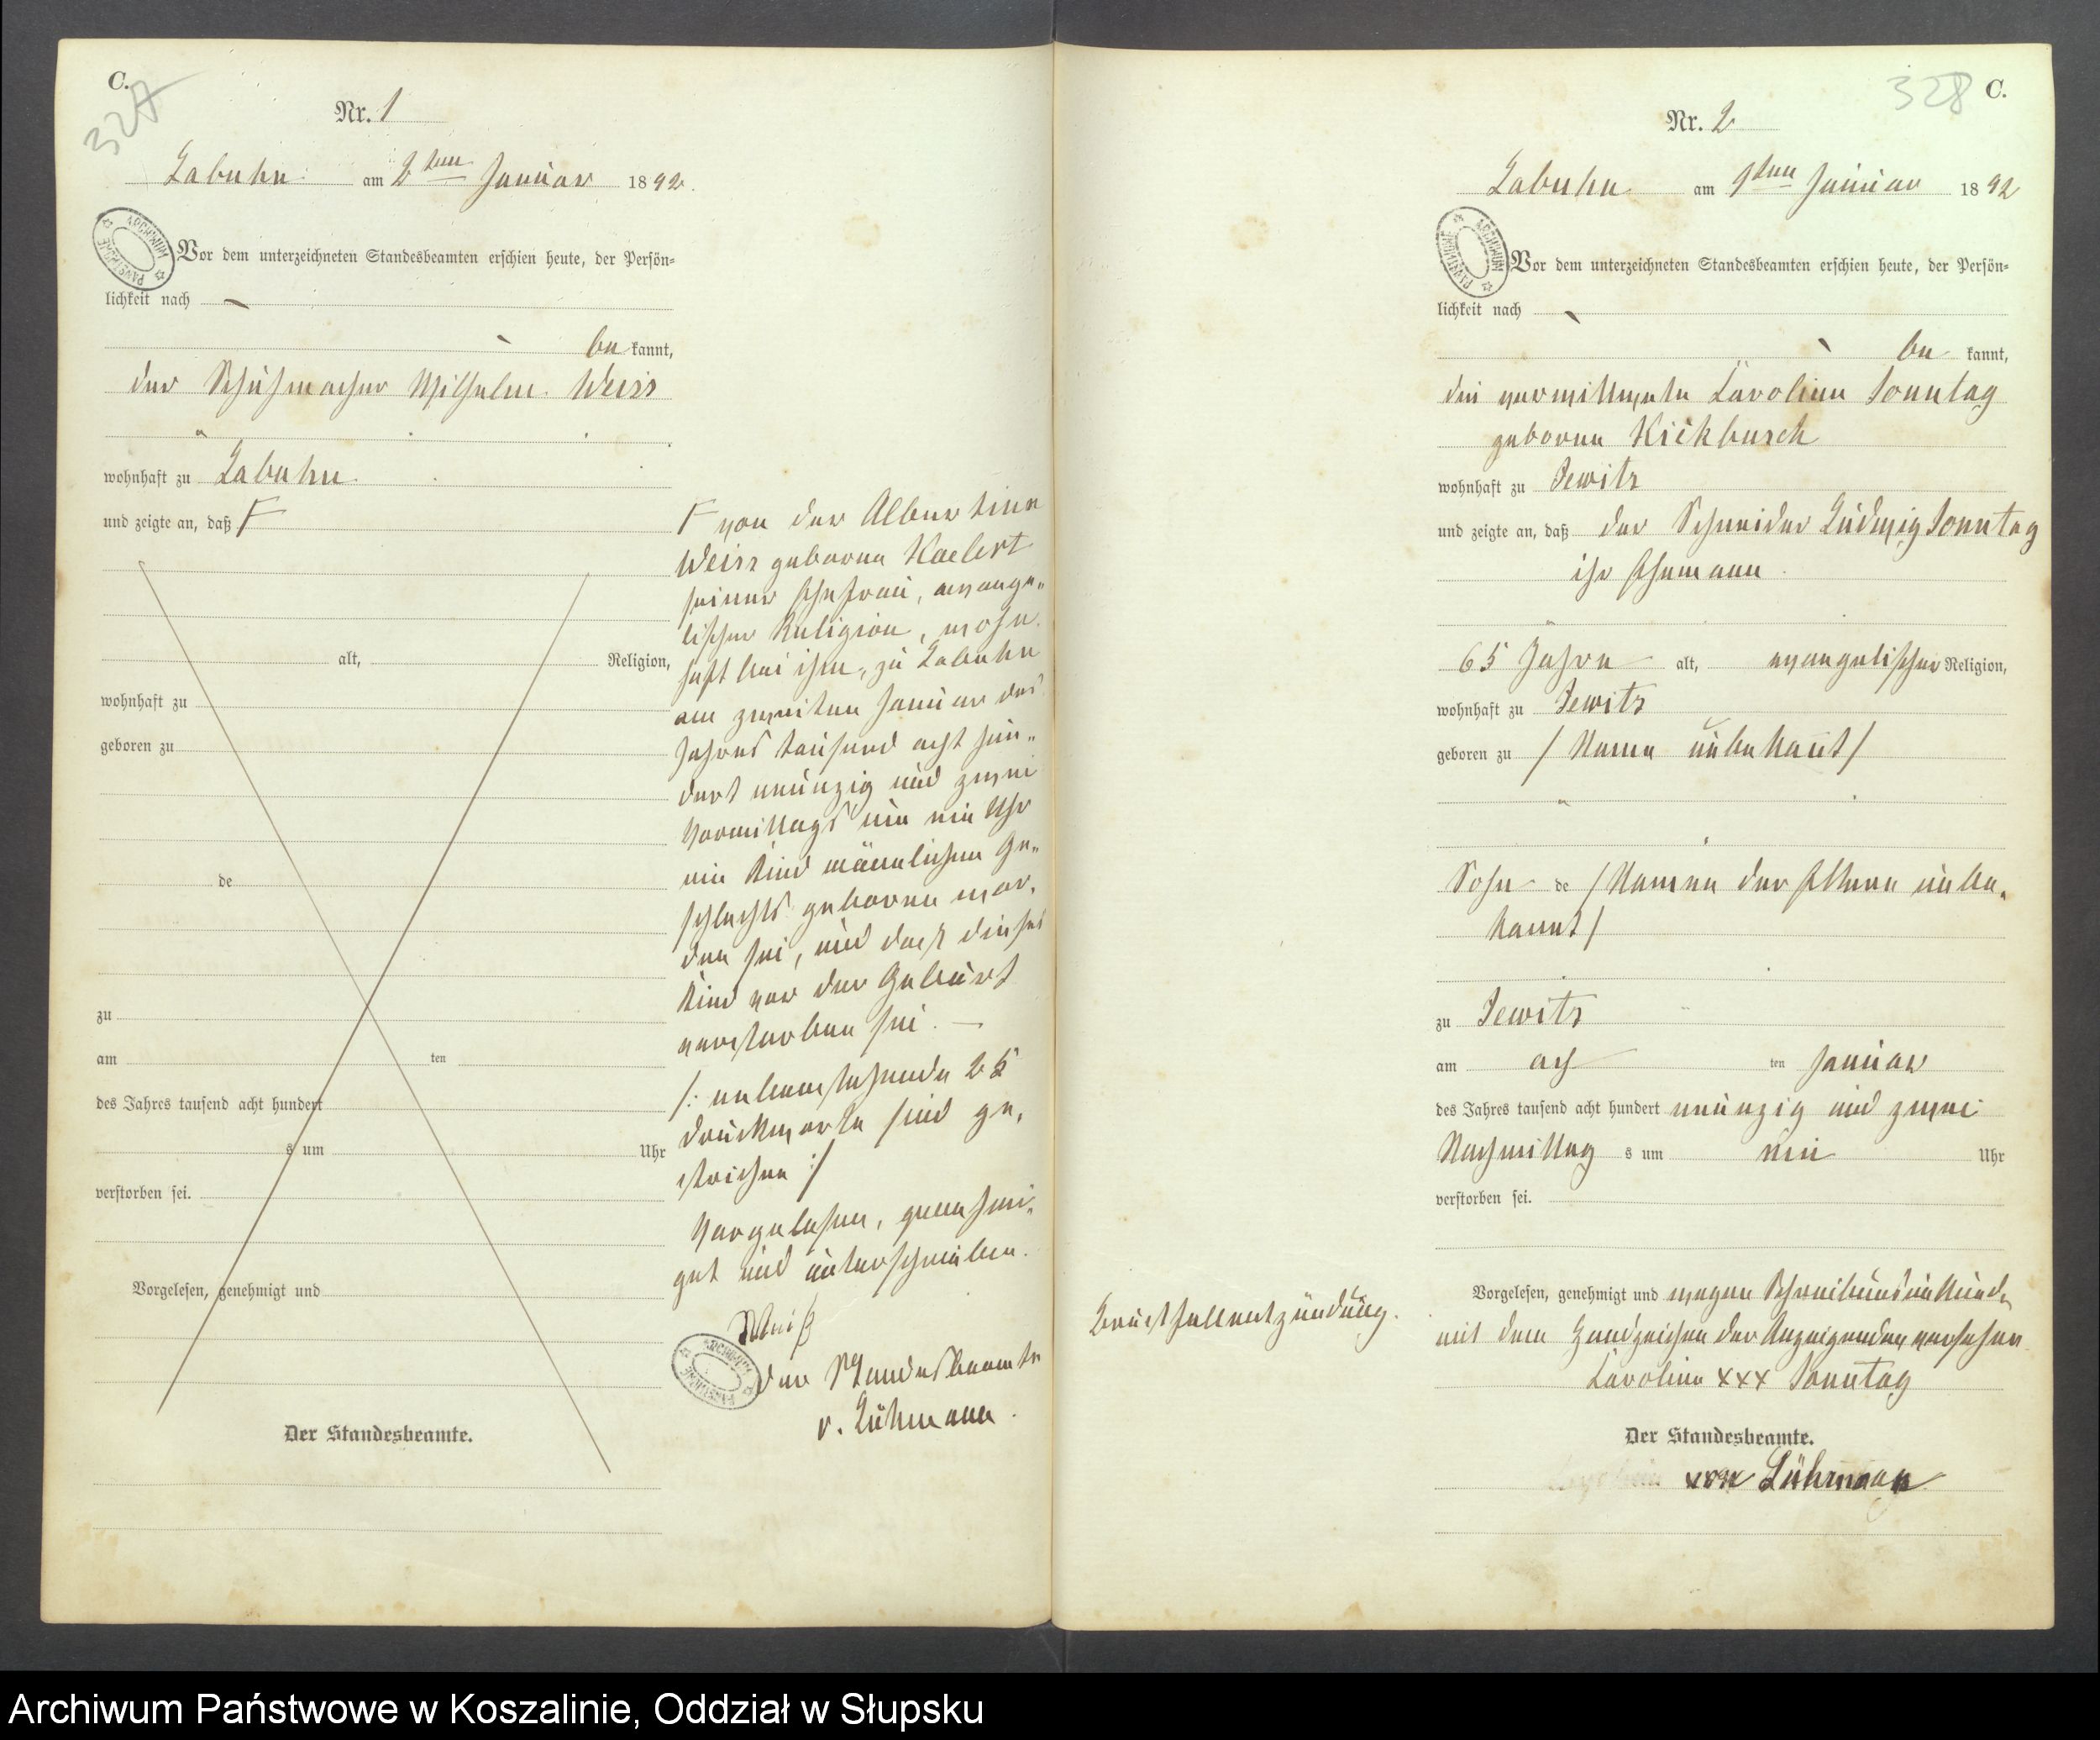 C.
327
Nr. 1
Labuhn am 2ten Januar 1892.
Vor dem unterzeichneten Standesbeamten erschien heute, der Persön-
lichkeit nach
bekannt,
der Schuhmacher Wilhelm Weiss
wohnhaft zu Labuhn
und zeigte an, daß F
alt, Religion,
wohnhaft zu
geboren zu
de
zu
am ten
des Jahres tausend acht hundert
s um Uhr
verstorben sei.
Vorgelesen, genehmigt und
Der Standesbeamte.
F von der Albertine
Weiss geborene
seiner Ehefrau, evange-
lischer Religion, wohn-
haft bei ihm, zu Labuhn
am zweiten Januar des
Jahres tausend acht hun-
dert neunzig und zwei
Vormittags um ein Uhr
ein Kind männlichen Ge-
schlechts geboren wor-
den sei, und dass dieses
Kind vor der Geburt
verstorben sei. —
/: nebenstehende 25
Druckworte sind ge-
strichen :/
Vorgelesen, genehmi-
gt und unterschrieben.
Weiß
der Standesbeamte
v. Lühmann.
ARCHIWUM PAŃSTWOWE
328 C.
Nr. 2
Labuhn am 9ten Januar 1892
Vor dem unterzeichneten Standesbeamten erschien heute, der Persön-
lichkeit nach
bekannt,
die verwittwete Karoline Sonntag
geborene Kickbusch
wohnhaft zu Jewitz
und zeigte an, daß der Schneider Ludwig Sonntag
ihr Ehemann
65 Jahre alt, evangelischer Religion,
wohnhaft zu Jewitz
geboren zu / Name unbekannt /
Sohn de / Namen der Eltern unbe-
kannt /
zu Jewitz
am ach ten Januar
des Jahres tausend acht hundert neunzig und zwei
Nachmittag s um ein Uhr
verstorben sei.
Vorgelesen, genehmigt und wegen Schreibensunkunde
mit dem Handzeichen der Anzeigenden versehen
Karoline xxx Sonntag
Der Standesbeamte.
von Lühmann
Brustfellentzündung.
ARCHIWUM PAŃSTWOWE
Archiwum Państwowe w Koszalinie, Oddział w Słupsku